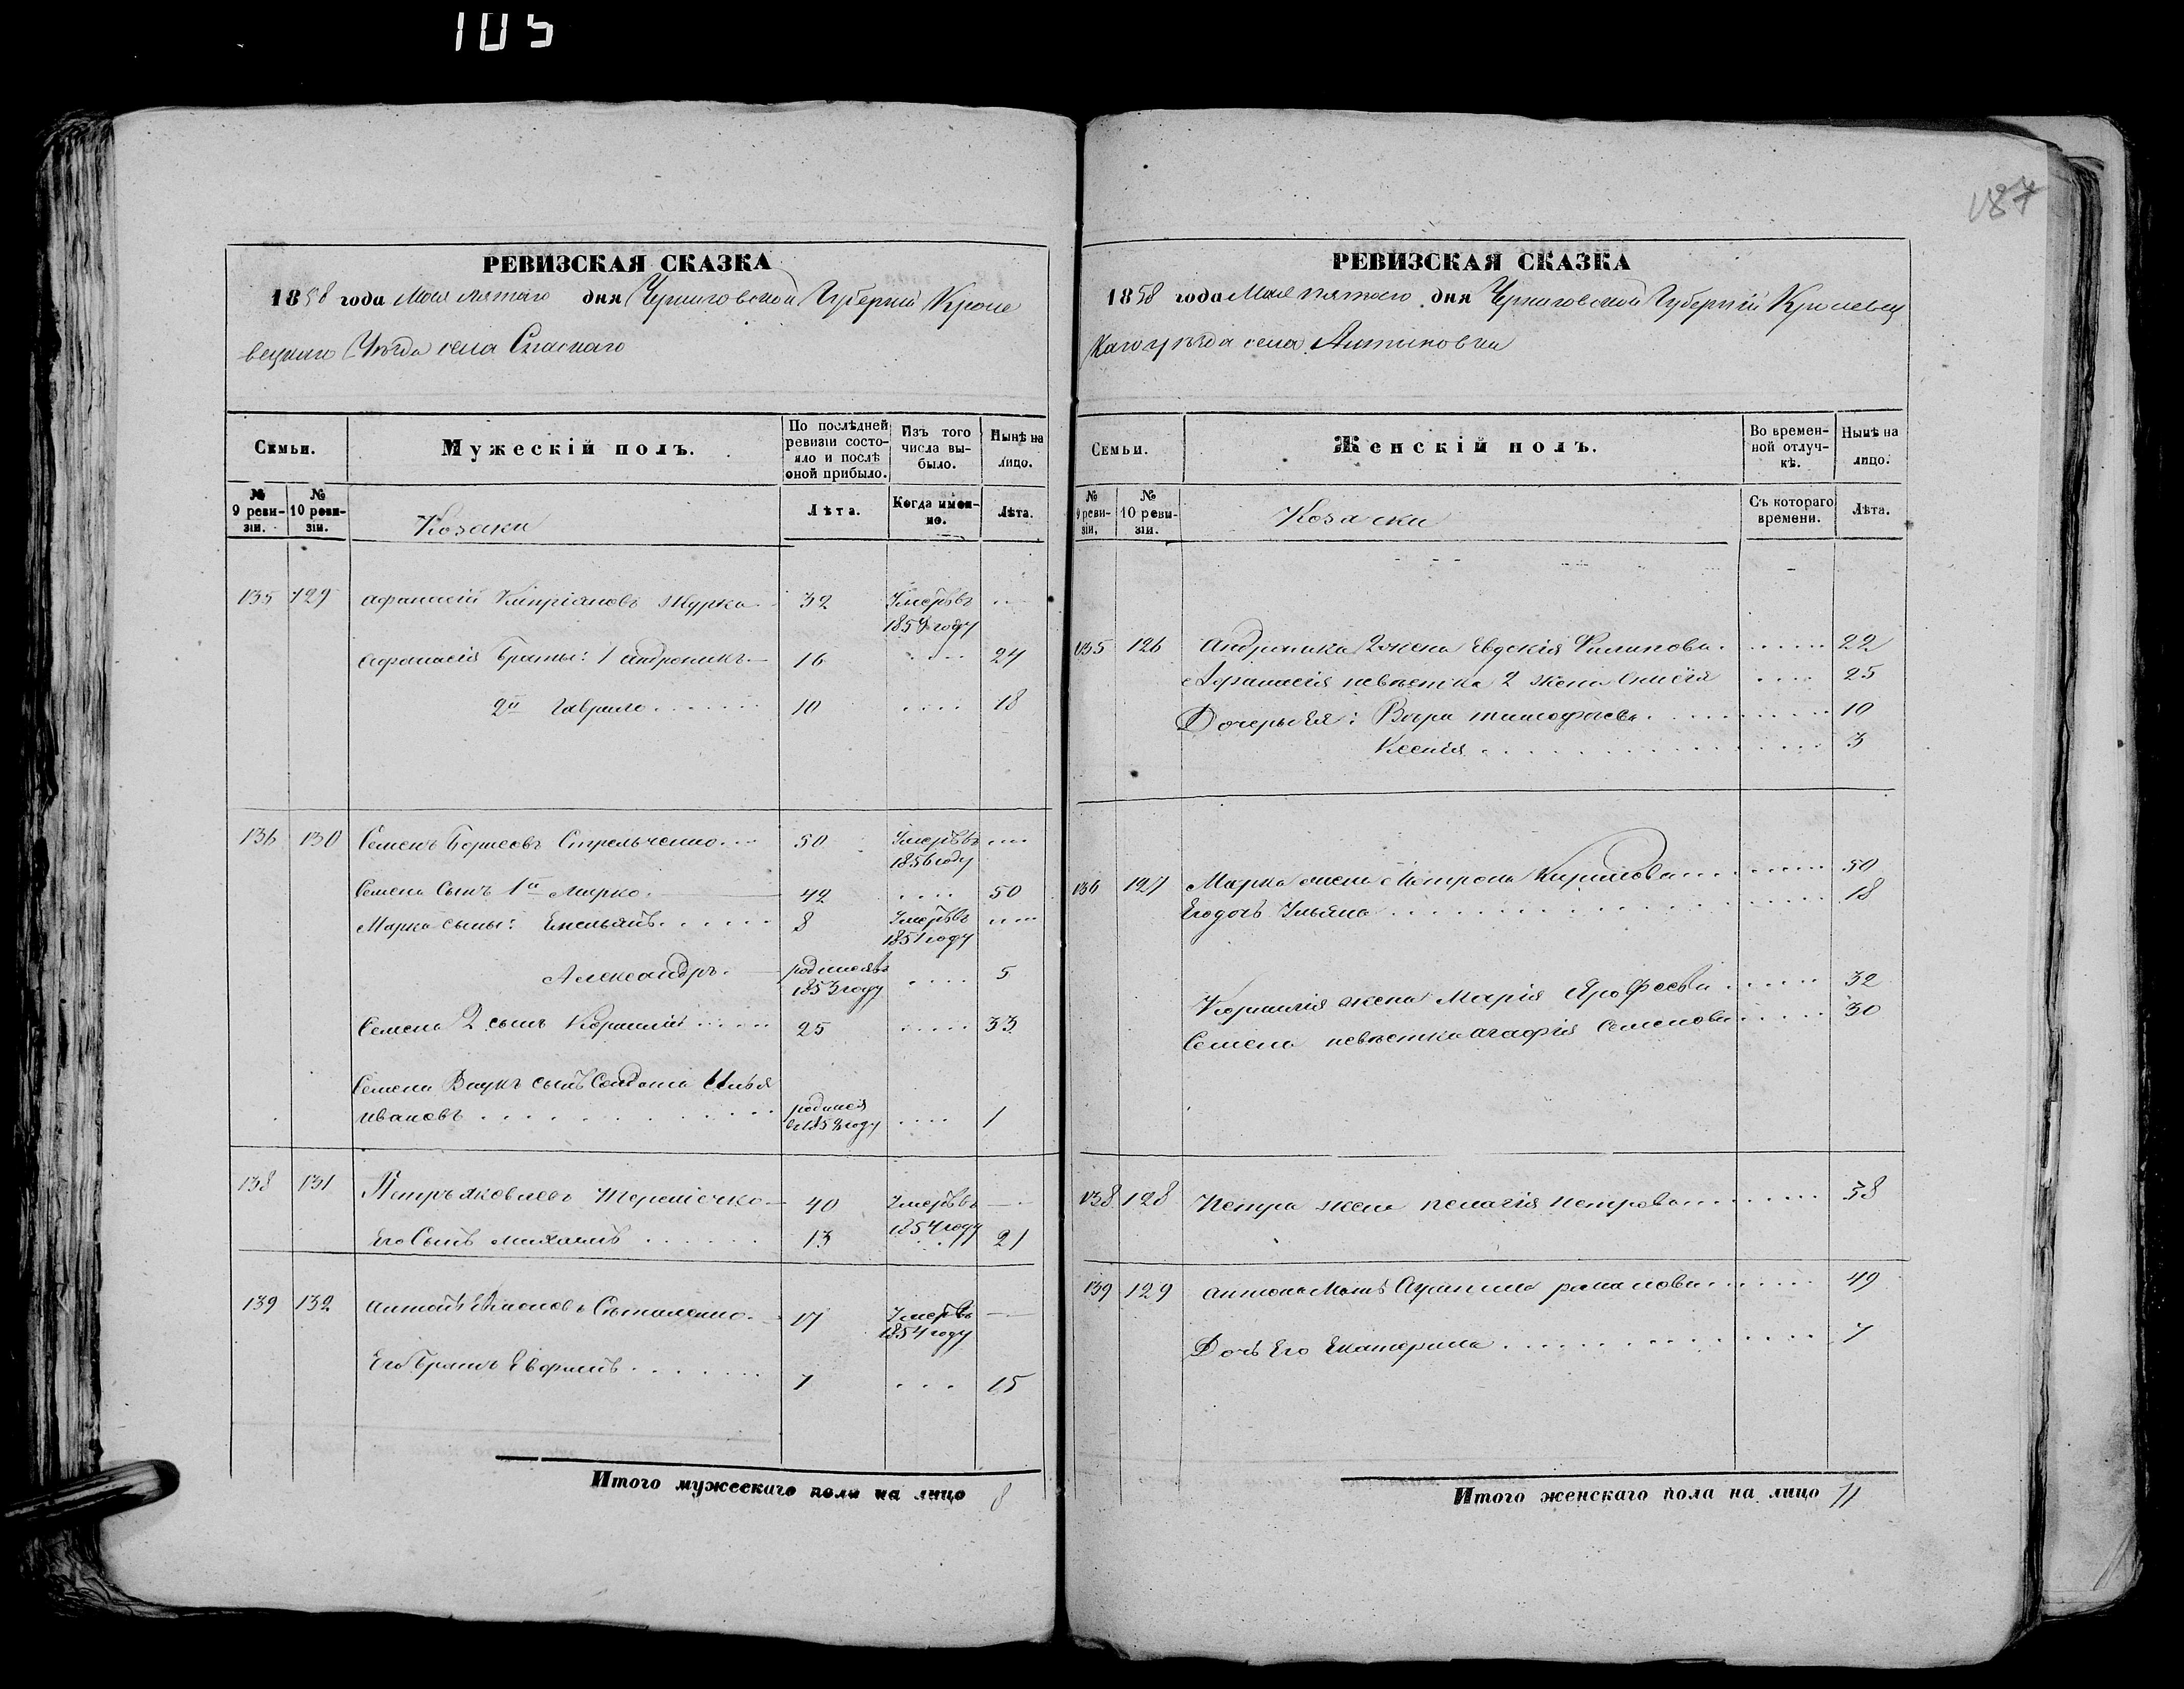 105
187
РЕВИЗСКАЯ СКАЗКА
1858 года Мая пятаго дня Черниговской Губерніи Кроле
вецкаго Уѣзда села Спаскаго
Семьи.
Мужескій полъ.
По послѣдней ревизіи состояло и послѣ оной прибыло.
Изъ того числа выбыло.
Нынѣ на лицо.
№ 9 ревизіи.
№ 10 ревизіи.
Козаки
Лѣта.
Когда именно.
Лѣта.
135 129 Афанасій Кипріановъ Журко 32 Умеръ въ
1854 году
Афанасія братья: 1 Андроникъ 16 24
2й Гаврило 10 18
136 130 Семенъ Борисовъ Стрельченко 50 Умеръ въ
1856 году
Семена сынъ 1й Марко 42 50
Марка сыны: Емельянъ 8 Умеръ въ
1851 году
Александръ родился въ
1853 году 5
Семена 2 сынъ Корнилій 25 33
Семена внукъ сынъ Солдата Илья
Ивановъ родился
году 1
138 131 Петръ Яковлевъ 40 Умеръ въ
1854 году
Его сынъ Михаилъ 13 21
139 132 Антонъ 17 Умеръ въ
1854 году
Его братъ Евфимъ 7 15
Итого мужескаго пола на лицо 8
РЕВИЗСКАЯ СКАЗКА
1858 года Мая пятаго дня Черниговской Губерніи Кролевец
каго уѣзда села
Семьи.
Женскій полъ.
Во временной отлучкѣ.
Нынѣ на лицо.
№ 9 ревизіи.
№ 10 ревизіи.
Козачки
Съ котораго времени.
Лѣта.
135 126 Андроника 2 жена Евдокія Филипова 22
Афанасія невѣстка 2 жена 25
Дочеры ея: Вѣра Тимофѣева 10
Ксенія 3
136 127 Марка жена Матрона Кирилова 50
Его дочь Ульяна 18
Корнилія жена Марія 32
Семена невѣстка Агафія Семенова 30
138 128 Петра жена Пелагія Петрова 38
139 129 Антона мать романова 49
Дочь Его Екатерина 7
Итого женскаго пола на лицо 11